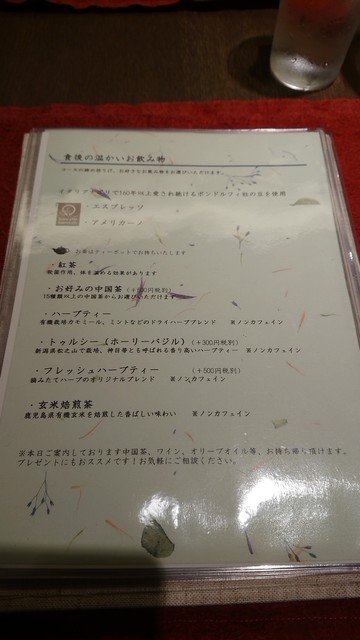 食後の温かいお飲み物
コースの締め括りは、お好きなお飲み物をお選びいただけます。
イタリア で160年以上愛され続けるボンドルフィ社の豆を使用
・エスプレッソ
・アメリカーノ
お茶はティーポットでお持ちいたします
・紅茶
殺菌作用、体を温める効果があります
・お好みの中国茶（+500円税別）
15種類以上の中国茶からお選びいただけます
・ハーブティー
有機栽培カモミール、ミントなどのドライハーブブレンド ※ノンカフェイン
・トゥルシー（ホーリーバジル）（+300円税別）
新潟県松之山で栽培、神目箒とも呼ばれる香り高いハーブティー ※ノンカフェイン
・フレッシュハーブティー （+500円税別）
摘みたてハーブのオリジナルブレンド ※ノンカフェイン
・玄米焙煎茶
鹿児島県有機玄米を焙煎した香ばしい味わい ※ノンカフェイン
※本日ご案内しております中国茶、ワイン、オリーブオイル等、お持ち帰り頂けます。
プレゼントにもおススメです！お気軽にご相談ください。